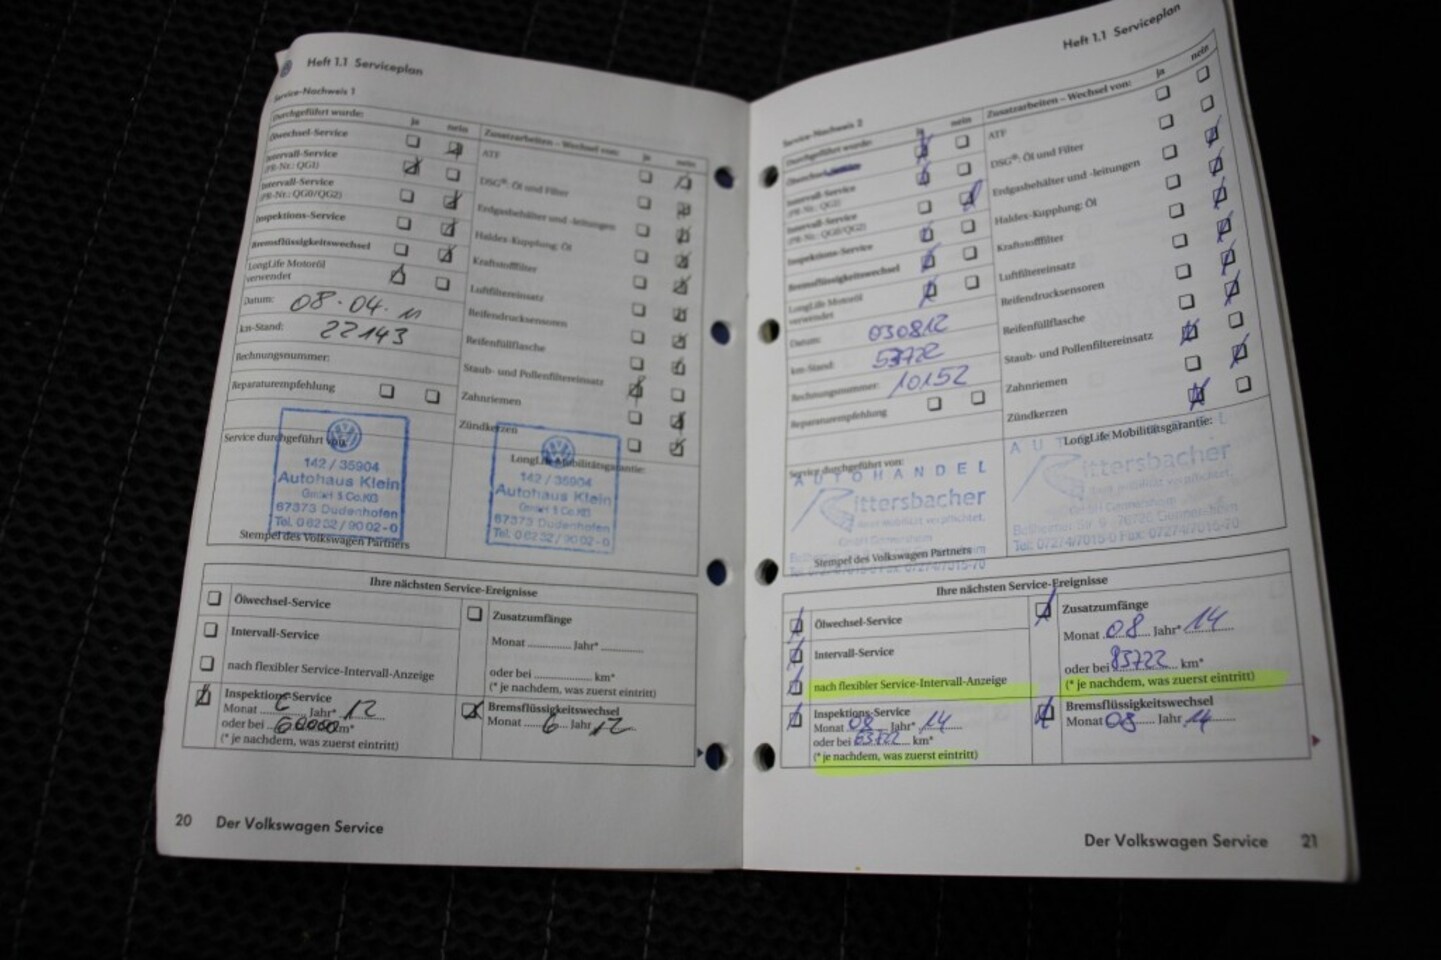 Heft 1.1 Serviceplan
Service-Nachweis 1
Durchgeführt wurde: ja nein
Ölwechsel-Service
Intervall-Service
(PR-Nr.: QG1)
Intervall-Service
(PR-Nr.: QG0/QG2)
Inspektions-Service
Bremsflüssigkeitswechsel
LongLife Motoröl
verwendet
Datum: 08.04.11
km-Stand: 22143
Rechnungsnummer:
Reparaturempfehlung
Zusatzarbeiten – Wechsel von: ja nein
ATF
DSG®: Öl und Filter
Erdgasbehälter und -leitungen
Haldex-Kupplung: Öl
Kraftstofffilter
Luftfiltereinsatz
Reifendrucksensoren
Reifenfüllflasche
Staub- und Pollenfiltereinsatz
Zahnriemen
Zündkerzen
Service durchgeführt von:
142 / 35904
Autohaus Klein
GmbH & Co.KG
67373 Dudenhofen
Tel. 0 62 32 / 90 02 - 0
Stempel des Volkswagen Partners
LongLife Mobilitätsgarantie:
142 / 35904
Autohaus Klein
GmbH & Co.KG
67373 Dudenhofen
Tel. 0 62 32 / 90 02 - 0
Ihre nächsten Service-Ereignisse
Ölwechsel-Service
Intervall-Service
nach flexibler Service-Intervall-Anzeige
Inspektions-Service
Monat 6 Jahr* 12
oder bei 60000 km*
(* je nachdem, was zuerst eintritt)
Zusatzumfänge
Monat Jahr*
oder bei km*
(* je nachdem, was zuerst eintritt)
Bremsflüssigkeitswechsel
Monat 6 Jahr 12
20 Der Volkswagen Service
Heft 1.1 Serviceplan
Service-Nachweis 2
Durchgeführt wurde: ja nein
Intervall-Service
Intervall-Service
(PR-Nr.: QG0/QG2)
Inspektions-Service
Bremsflüssigkeitswechsel
LongLife Motoröl
verwendet
Datum: 030812
km-Stand: 53722
Rechnungsnummer: 10152
Reparaturempfehlung
Zusatzarbeiten – Wechsel von: ja nein
ATF
DSG®: Öl und Filter
Erdgasbehälter und -leitungen
Haldex-Kupplung: Öl
Kraftstofffilter
Luftfiltereinsatz
Reifendrucksensoren
Reifenfüllflasche
Staub- und Pollenfiltereinsatz
Zahnriemen
Zündkerzen
Service durchgeführt von:
AUTOHANDEL
Rittersbacher
GmbH Germersheim
Stempel des Volkswagen Partners
LongLife Mobilitätsgarantie:
Rittersbacher
GmbH Germersheim
76726 Germersheim
Tel: 07274/7015-0 Fax: 07274/7015-70
Ihre nächsten Service-Ereignisse
Ölwechsel-Service
Intervall-Service
nach flexibler Service-Intervall-Anzeige
Inspektions-Service
Monat 08 Jahr* 14
oder bei 83722 km*
(* je nachdem, was zuerst eintritt)
Zusatzumfänge
Monat 08 Jahr* 14
oder bei 83722 km*
(* je nachdem, was zuerst eintritt)
Bremsflüssigkeitswechsel
Monat 08 Jahr 14
Der Volkswagen Service 21